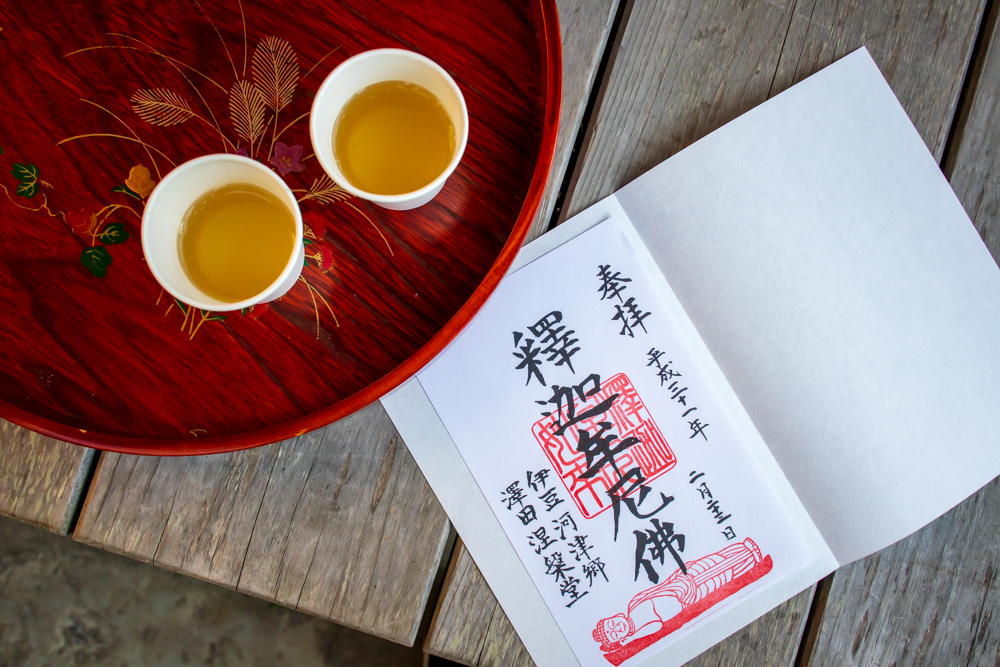 奉拝
平成三十一年 二月二十三日
釋迦牟尼佛
伊豆河津郷
澤田涅槃堂